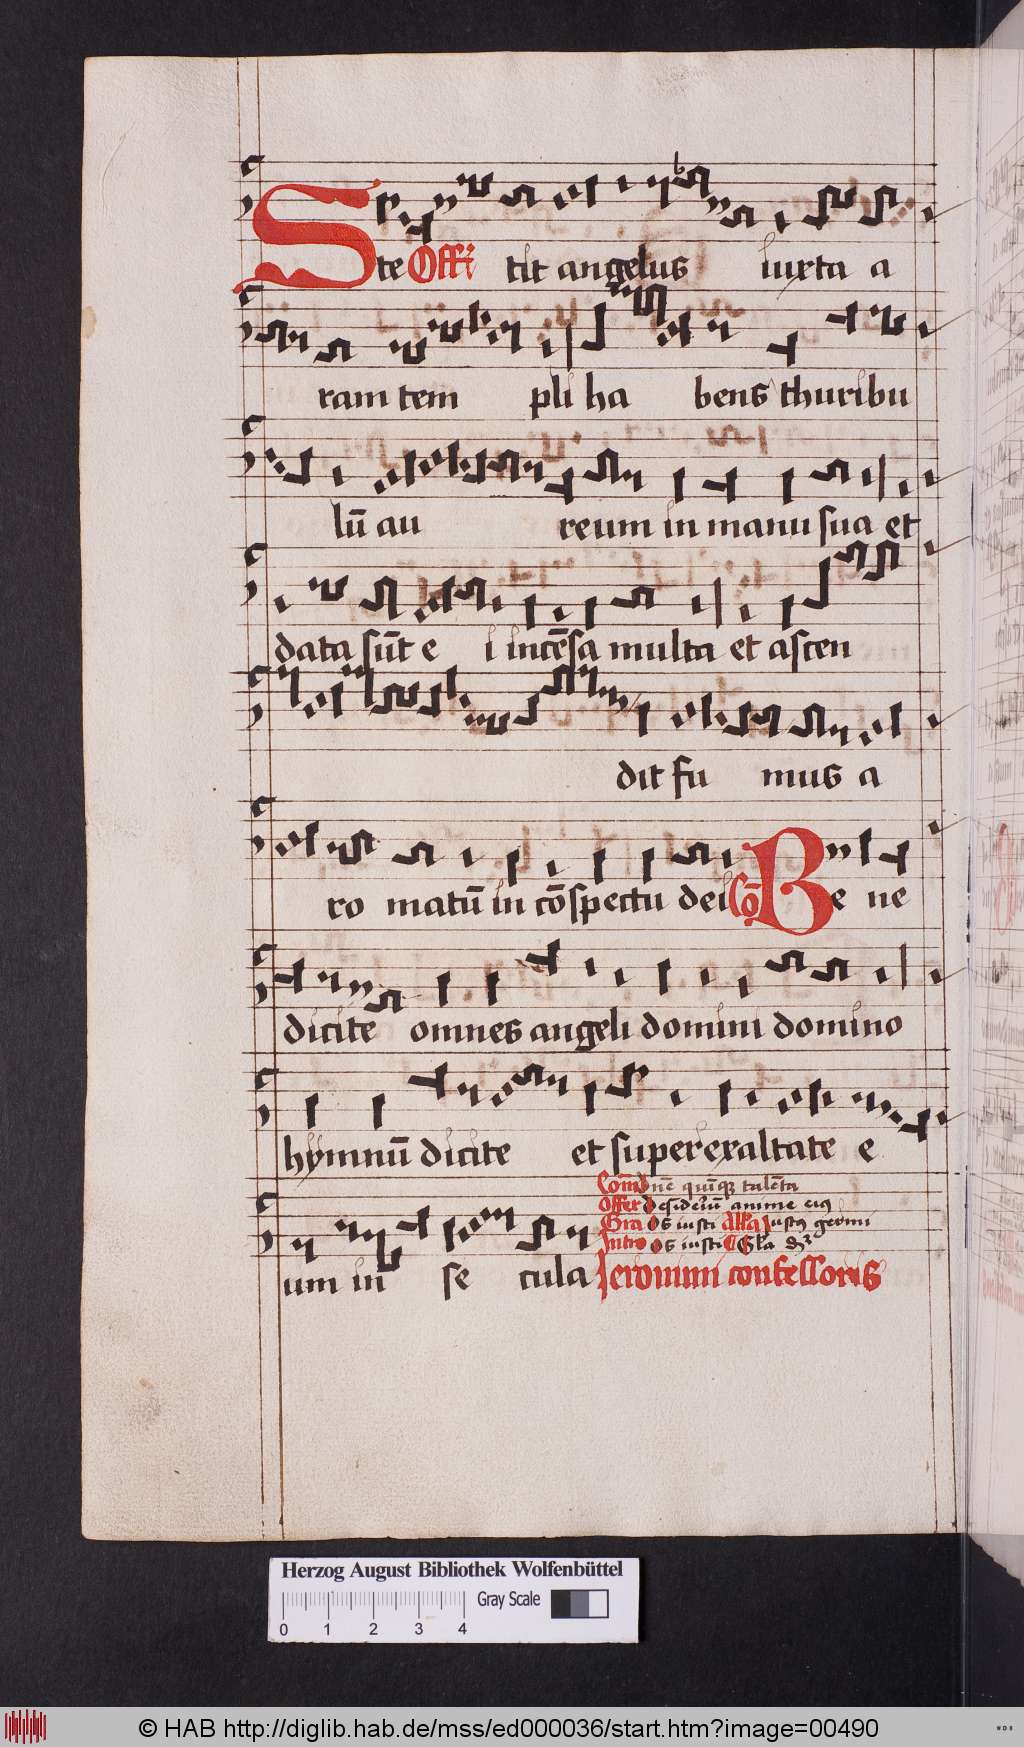 Ste Offi tit angelus iuxta a
ram tem pli ha bens thuribu
lū au reum in manu sua et
data sūt e i incēsa multa et ascen
dit fu mus a
ro matū in cōspectu dei Cō Be ne
dicite omnes angeli domini domino
hymnū dicite et superexaltate e
Com̄ dn̄e quīqꝫ talēta
Offer desideriū anime eiꝰ
Gra Os iusti Allᵃ Justꝰ germi
Intro Os iusti
um in se cula Jeronimi confessoris
Herzog August Bibliothek Wolfenbüttel
Gray Scale
0 1 2 3 4
© HAB http://diglib.hab.de/mss/ed000036/start.htm?image=00490